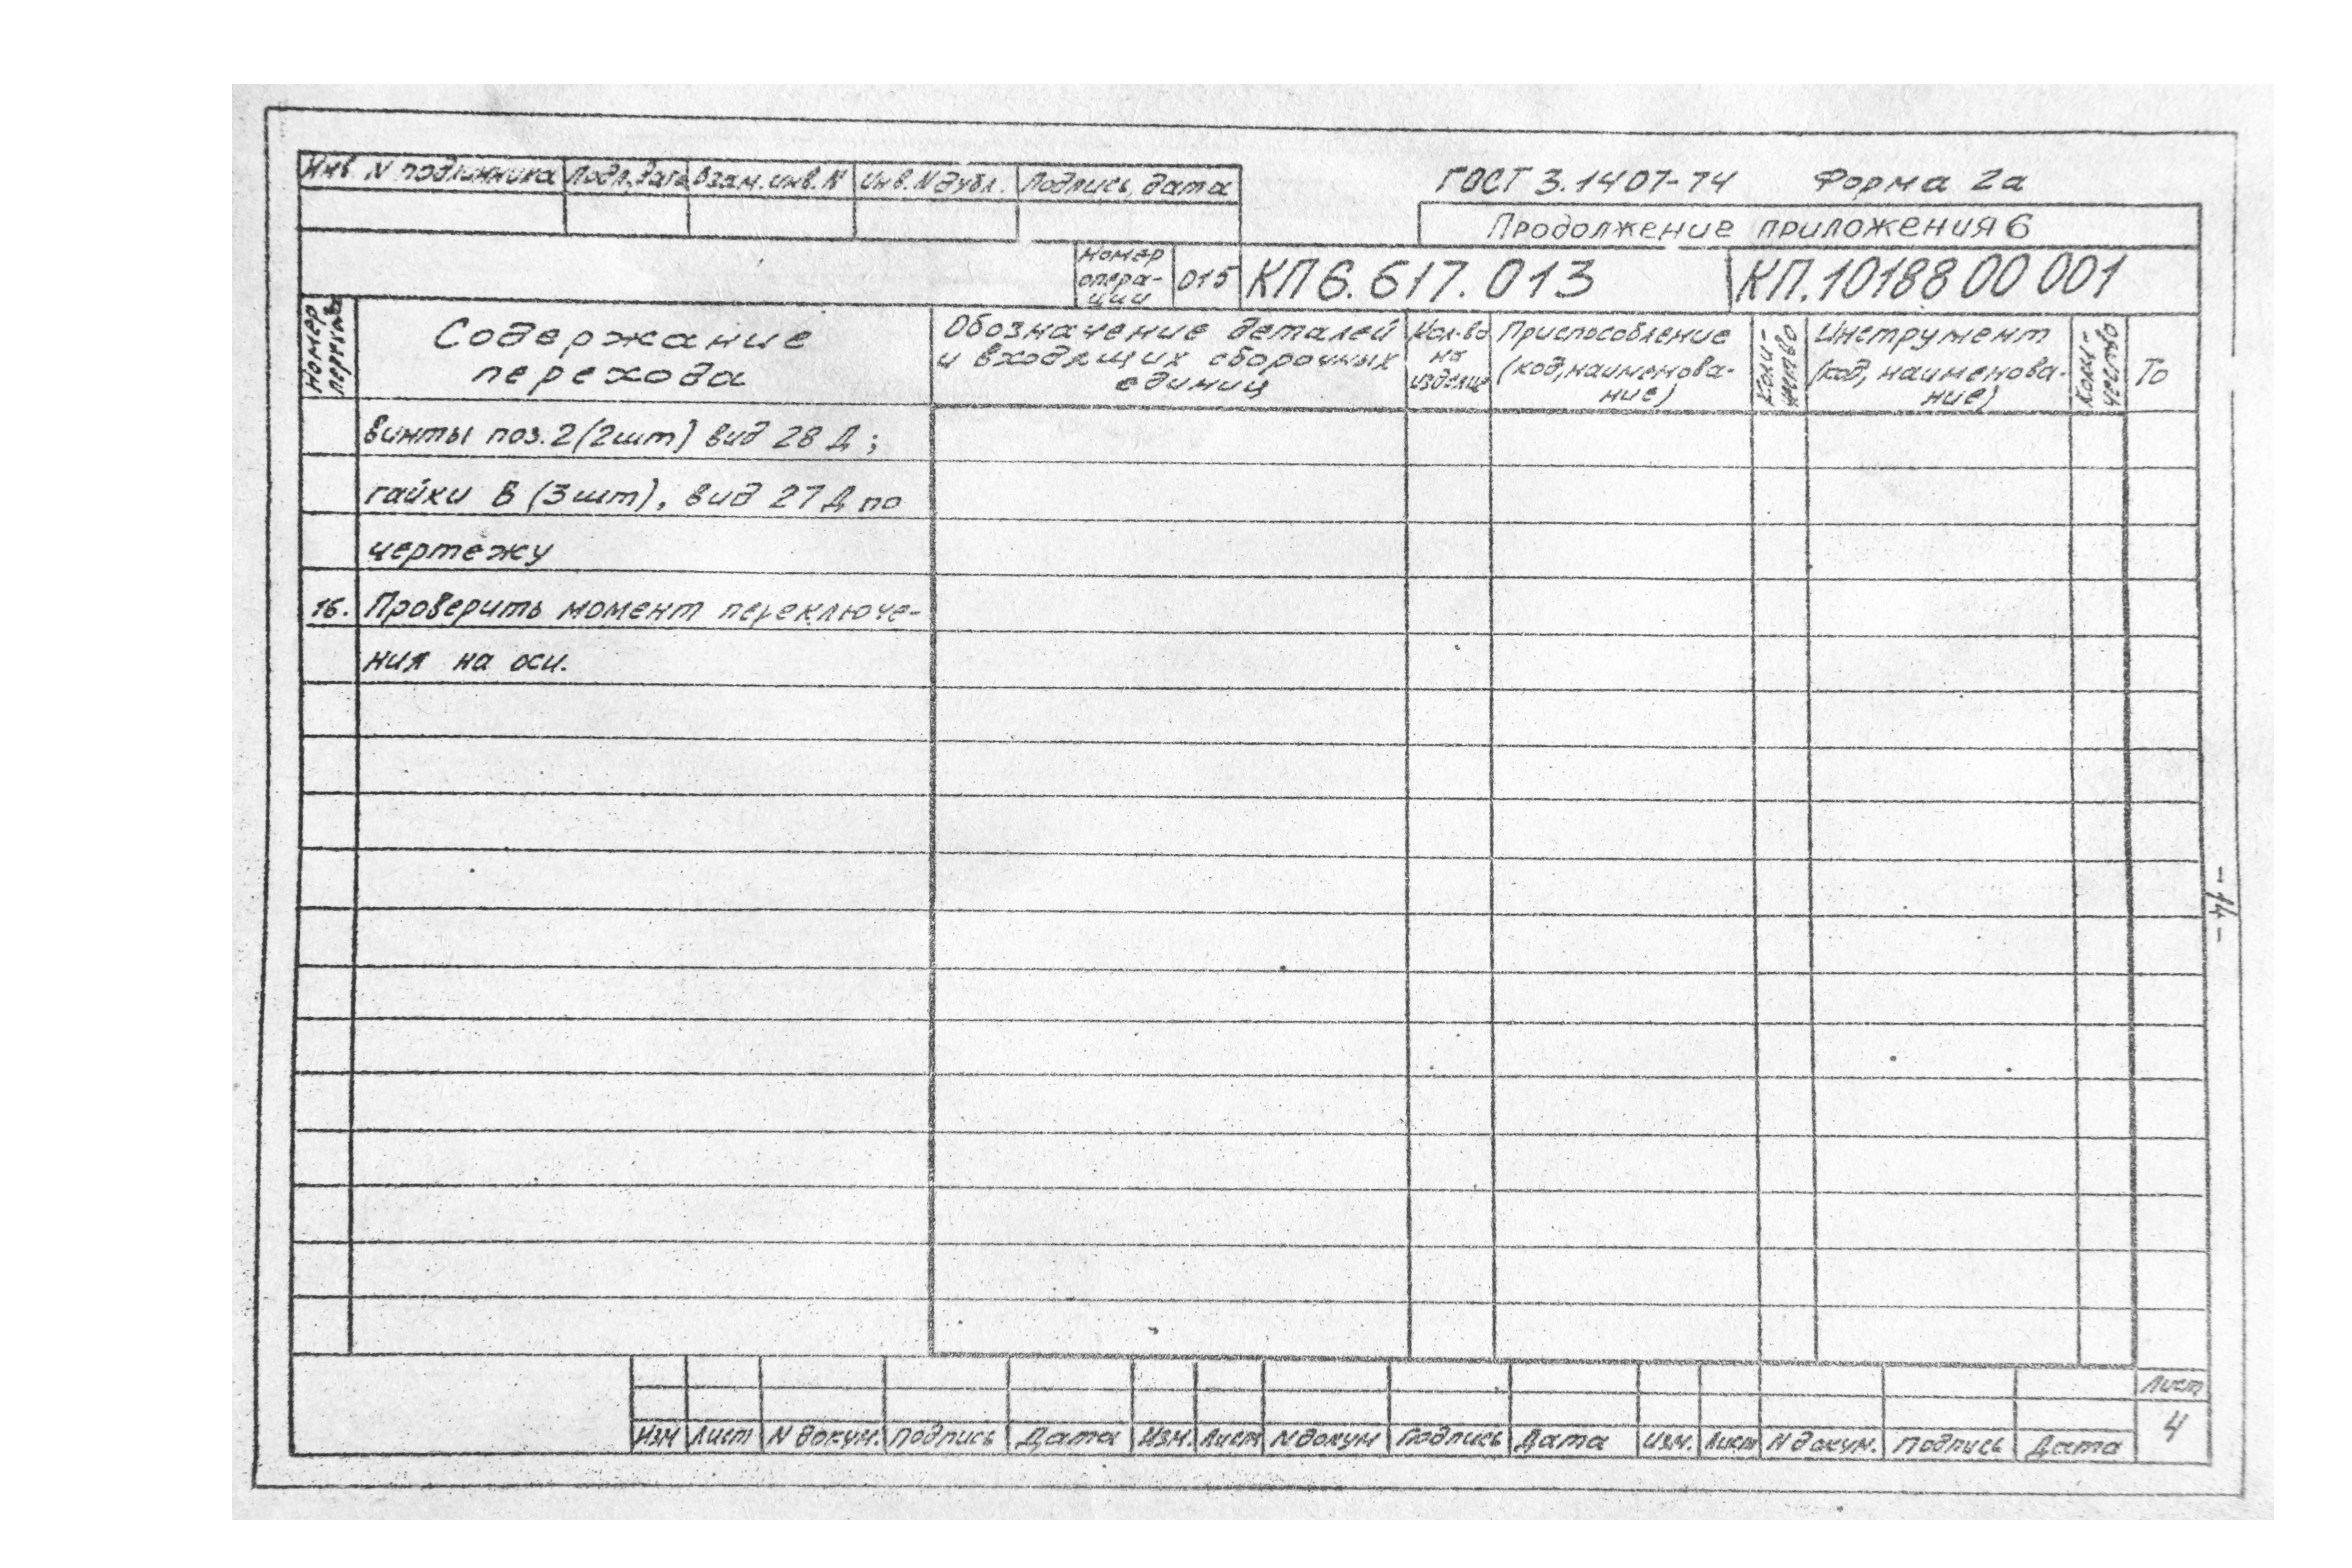 ГОСТ 3.1407-74 Форма 2а
Инв. N подлинника Подп. дата Взам. инв. N Инв. N дубл. Подпись, дата
Продолжение приложения 6
Номер
опера-
ции
015
КП6.617.013
КП.10188 00 001
Номер
перехода
Содержание
перехода
Обозначение деталей
и входящих сборочных
единиц
Кол-во
на
изделие
Приспособление
(код, наименова-
ние)
Коли-
чество
Инструмент
(код, наименова-
ние)
Коли-
чество
То
винты поз.2 (2шт) вид 28 Д;
гайки В (3шт), вид 27 Д по
чертежу
16. Проверить момент переключе-
ния на оси.
Изм Лист N докум. Подпись Дата Изм. Лист N докум Подпись Дата Изм. Лист N докум. Подпись Дата
Лист
4